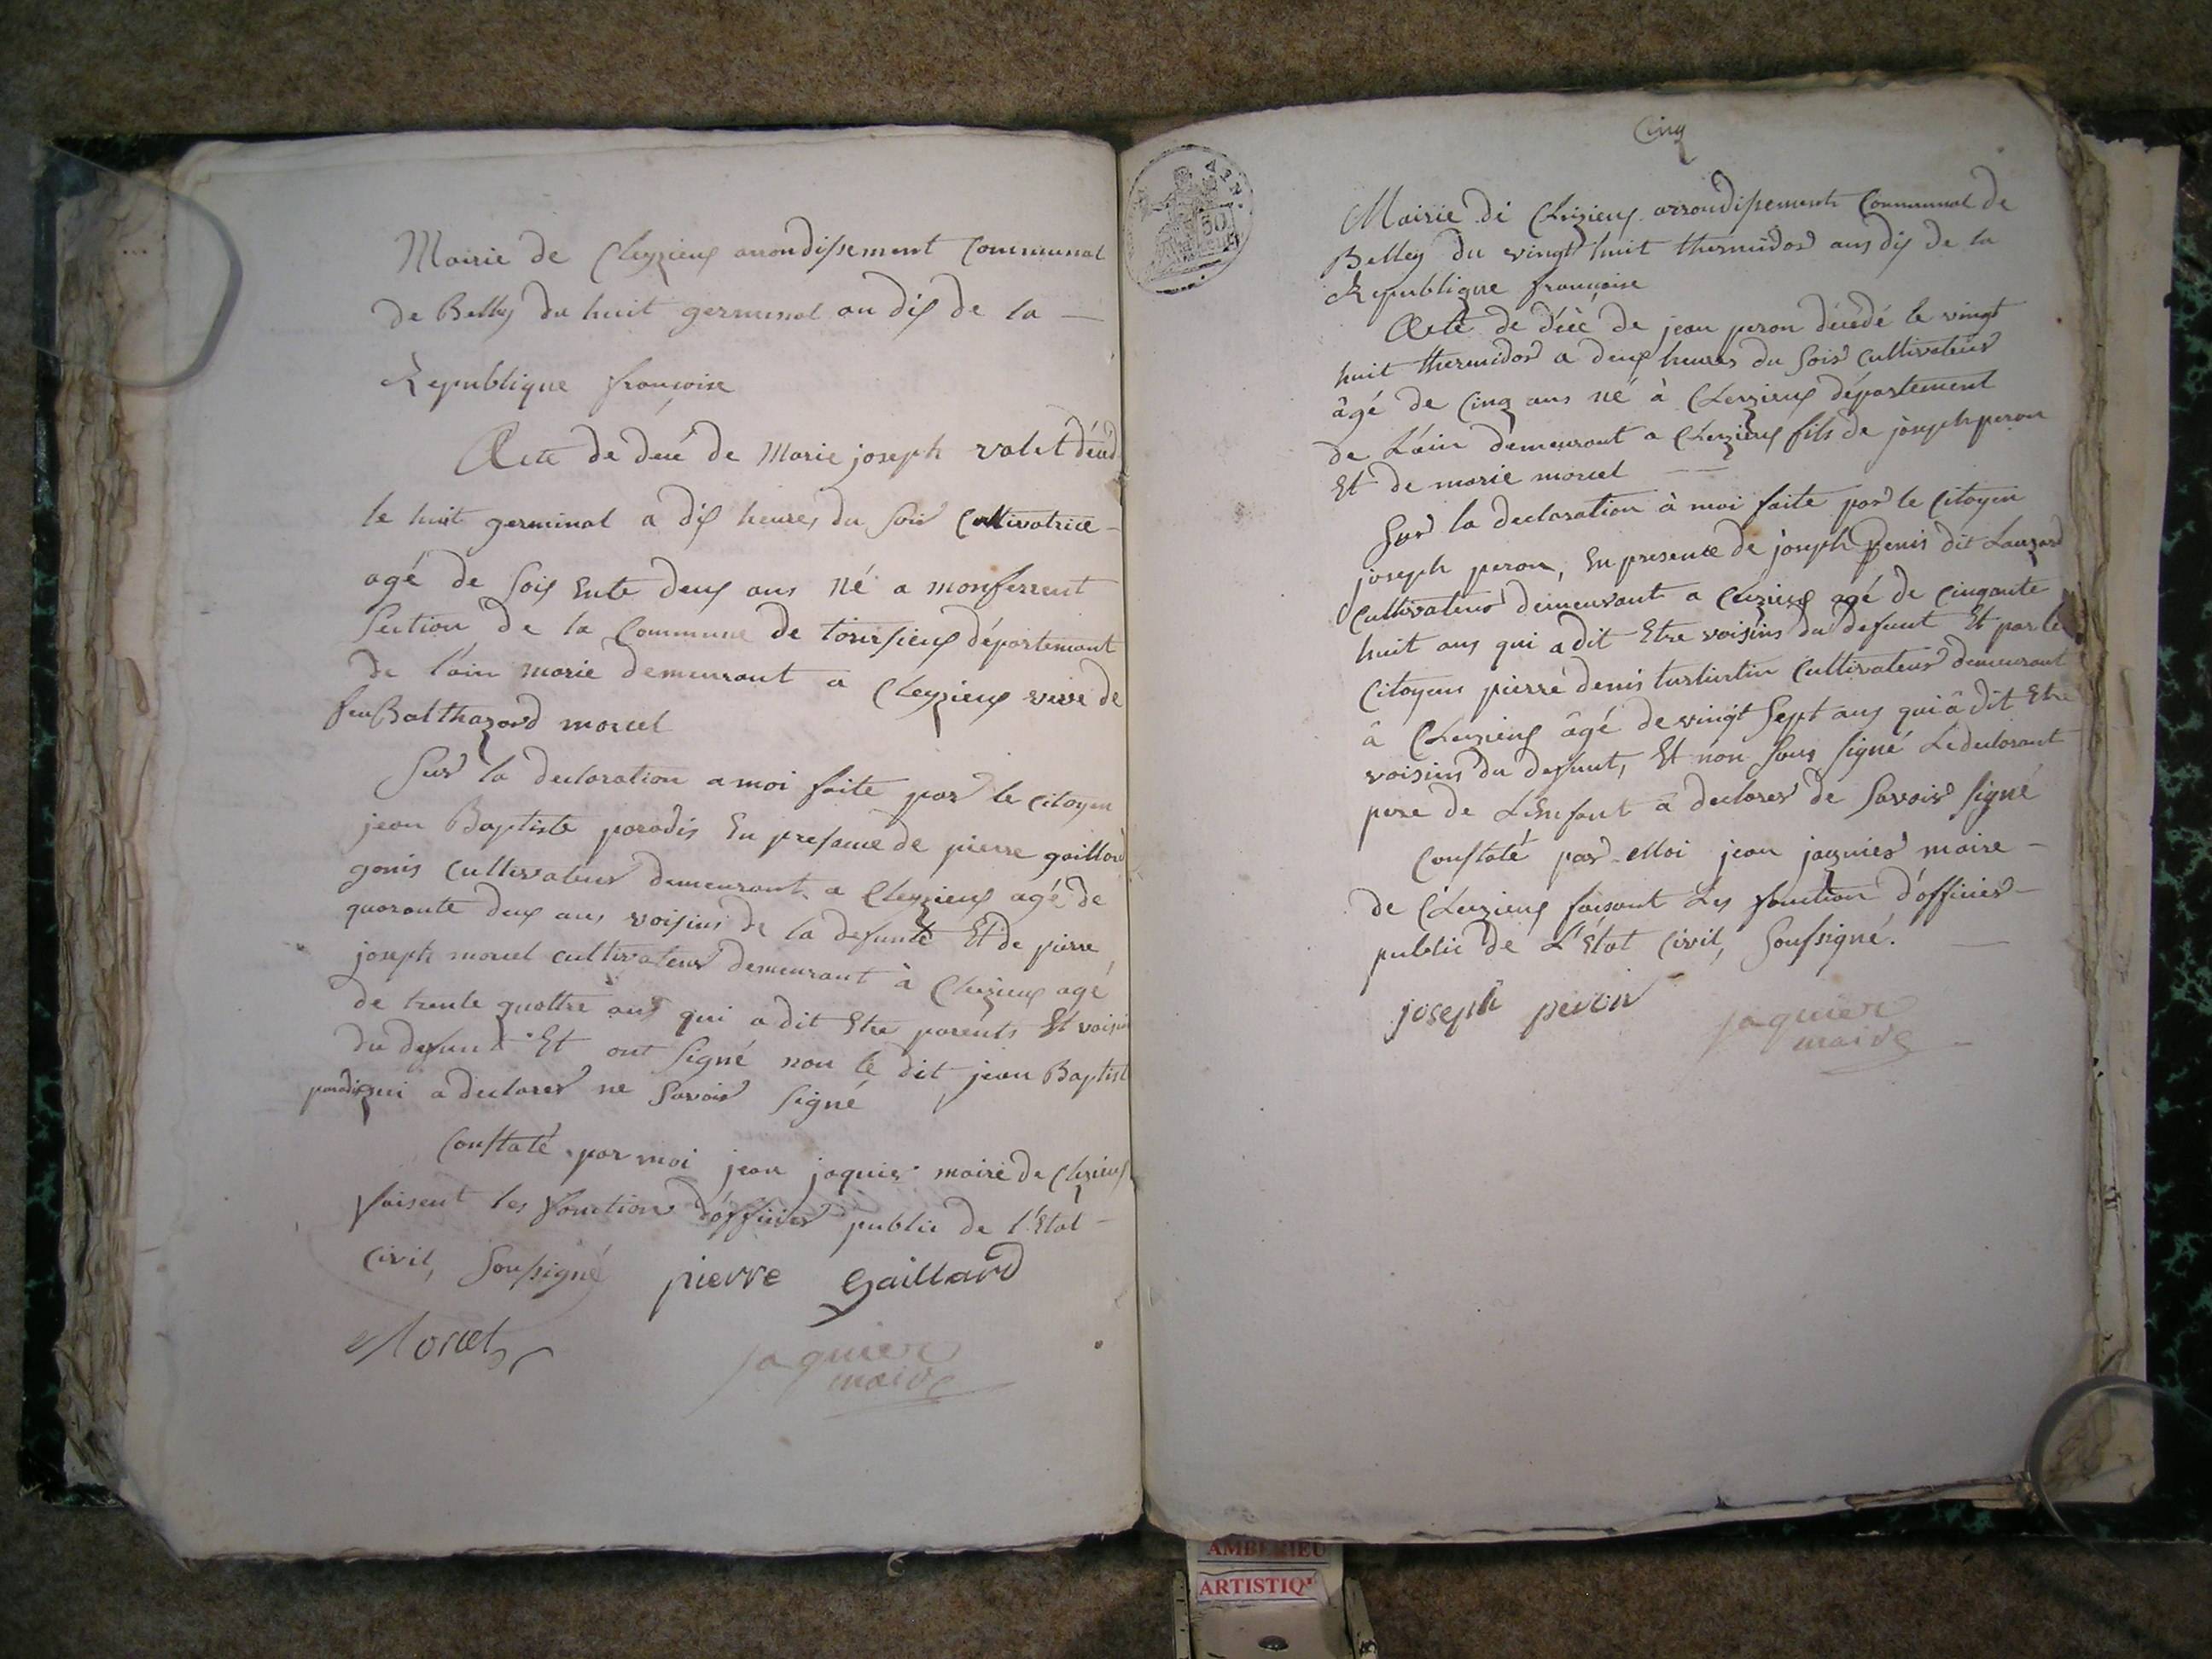 Mairie de Cleyzieux arrondissement Communal
de Belley du huit germinal an dix de la —
Republique françoise
Acte de decé de Marie joseph valet décéd
le huit germinal a dix heures du soir Cultivatrice –
agé de soix ente deux ans né a monferrent
section de la Commune de torcieux département
de l'ain marie demeurant a Cleyzieux veve de
feu Balthazard morcel
Sur la declaration a moi faite par le citoyen
jean Baptiste paradis En presance de pierre gaillard
gonis Cultivateur demeurant a Cleyzieux agé de
quarante deux ans voisins de la defunte Et de pierre
joseph morcel cultivateur demeurant à Cleizieux agé
de trente quattre ans qui a dit Etre parents Et voisin
du defunt Et ont signé non le dit jean Baptist
paradis qui a declarer ne savoir signé
Constaté par moi jean jaquier maire de Cleizieux
faisent les fonction d'officier public de l'Etat –
Civil, soussigné pierre gaillard
Morcel
jaquier
maire
Cinq
30
Mairie de Cleizieux arrondissement Communal de
Belley du vingt huit thermidor ans dix de la
Republique françoise
Acte de décé de jean peron décédé le vingt
huit thermidor a deux heures du soir cultivateur
âgé de cinq ans né à Cleizieux département
de L'ain demeurant a Cleizieux fils de joseph peron
Et de marie morcel
Sur la declaration à moi faite par le Citoyen
joseph peron, En presence de joseph Denis dit Lauzard
Cultivateur demeurant a Cleizieux agé de cinqante
huit ans qui a dit Etre voisins du defunt Et par le
Citoyens pierre denis turlurtin Cultivateur demeurant
à Cleizieux âgé de vingt sept ans qui â dit Etre
voisins du defunt, Et non sous signé Le declarant
pere de L'Enfant a declarer de savoir signé
Constaté par Moi jean jaquier maire –
de Cleizieux faisant Les fonction d'officier –
public de L'Etat Civil, soussigné.
joseph peron
jaquier
maire
AMBERIEU
ARTISTIQ